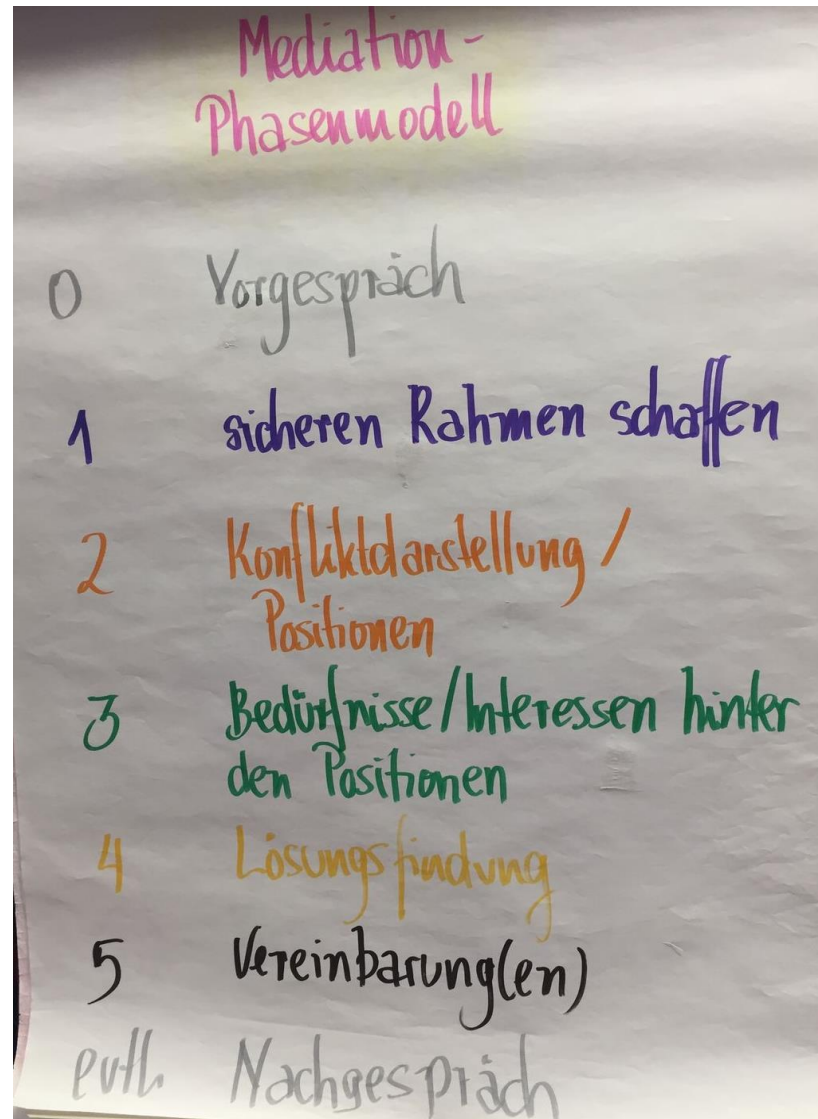 Mediation-
Phasenmodell
0 Vorgespräch
1 sicheren Rahmen schaffen
2 Konfliktdarstellung /
Positionen
3 Bedürfnisse/Interessen hinter
den Positionen
4 Lösungsfindung
5 Vereinbarung(en)
evtl. Nachgespräch